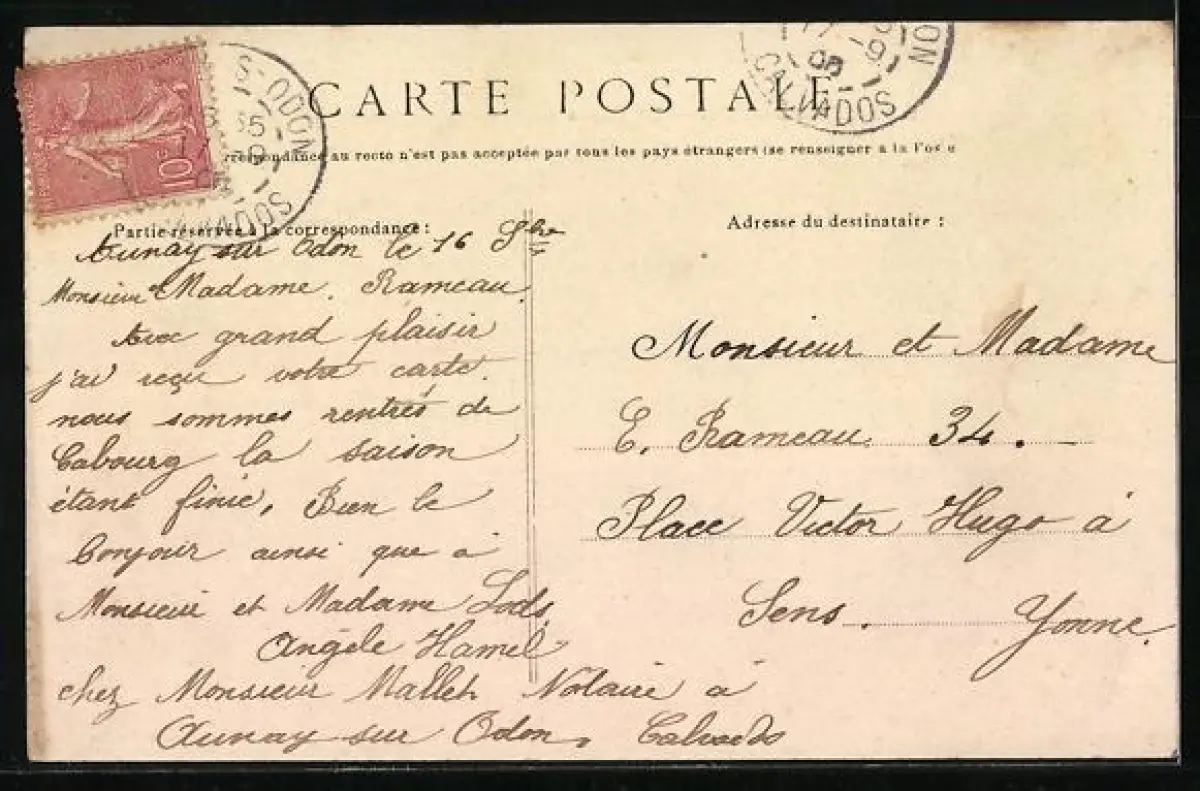 CARTE POSTALE
respondance au recto n'est pas acceptée par tous les pays étrangers (se renseigner à la Poste
Partie réservée à la correspondance :
Adresse du destinataire :
10c
S-ODON
CALVADOS
ODON
CALVADOS
Aunay sur Odon le 16 Sbre
Monsieur et Madame. Rameau.
Avec grand plaisir
j'ai reçu votre carte.
nous sommes rentrés de
Cabourg la saison
étant finie, Bien le
bonjour ainsi que à
Monsieur et Madame Lods
Angèle Hamel
chez Monsieur Mallet Notaire à
Aunay sur Odon, Calvados
Monsieur et Madame
E. Rameau 34.
Place Victor Hugo à
Sens. Yonne.